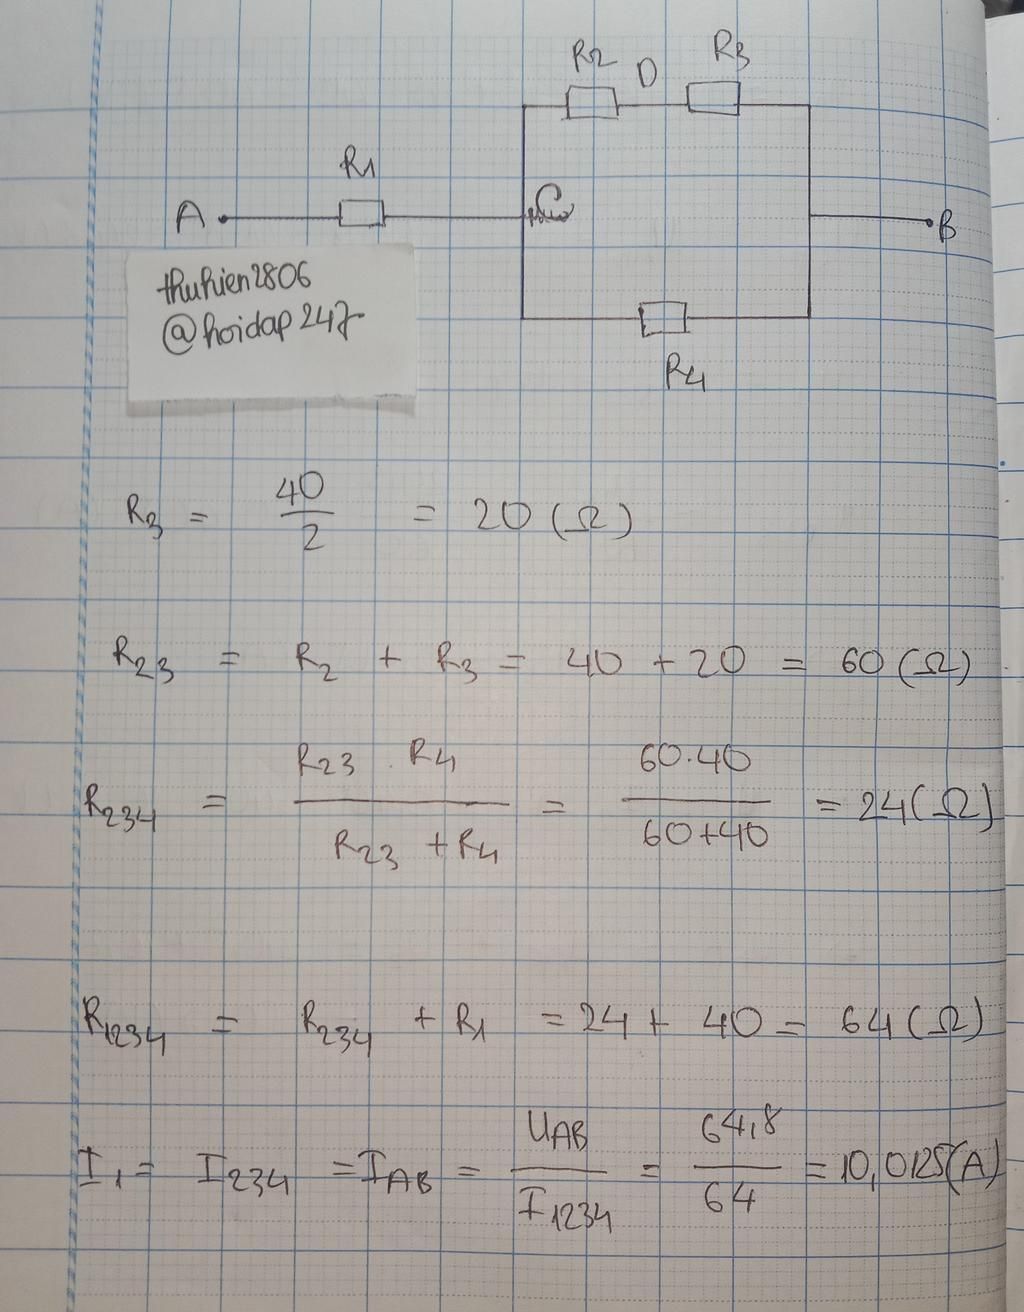 R2 D R3
R1
A C B
thuhien2806
@hoidap247
R4
R3 = 40/2 = 20 (Ω)
R23 = R2 + R3 = 40 + 20 = 60 (Ω)
R234 = R23 . R4 / R23 + R4 = 60.40 / 60+40 = 24 (Ω)
R1234 = R234 + R1 = 24 + 40 = 64 (Ω)
I1 = I234 = IAB = UAB / I1234 = 64,8 / 64 = 10,0125 (A)